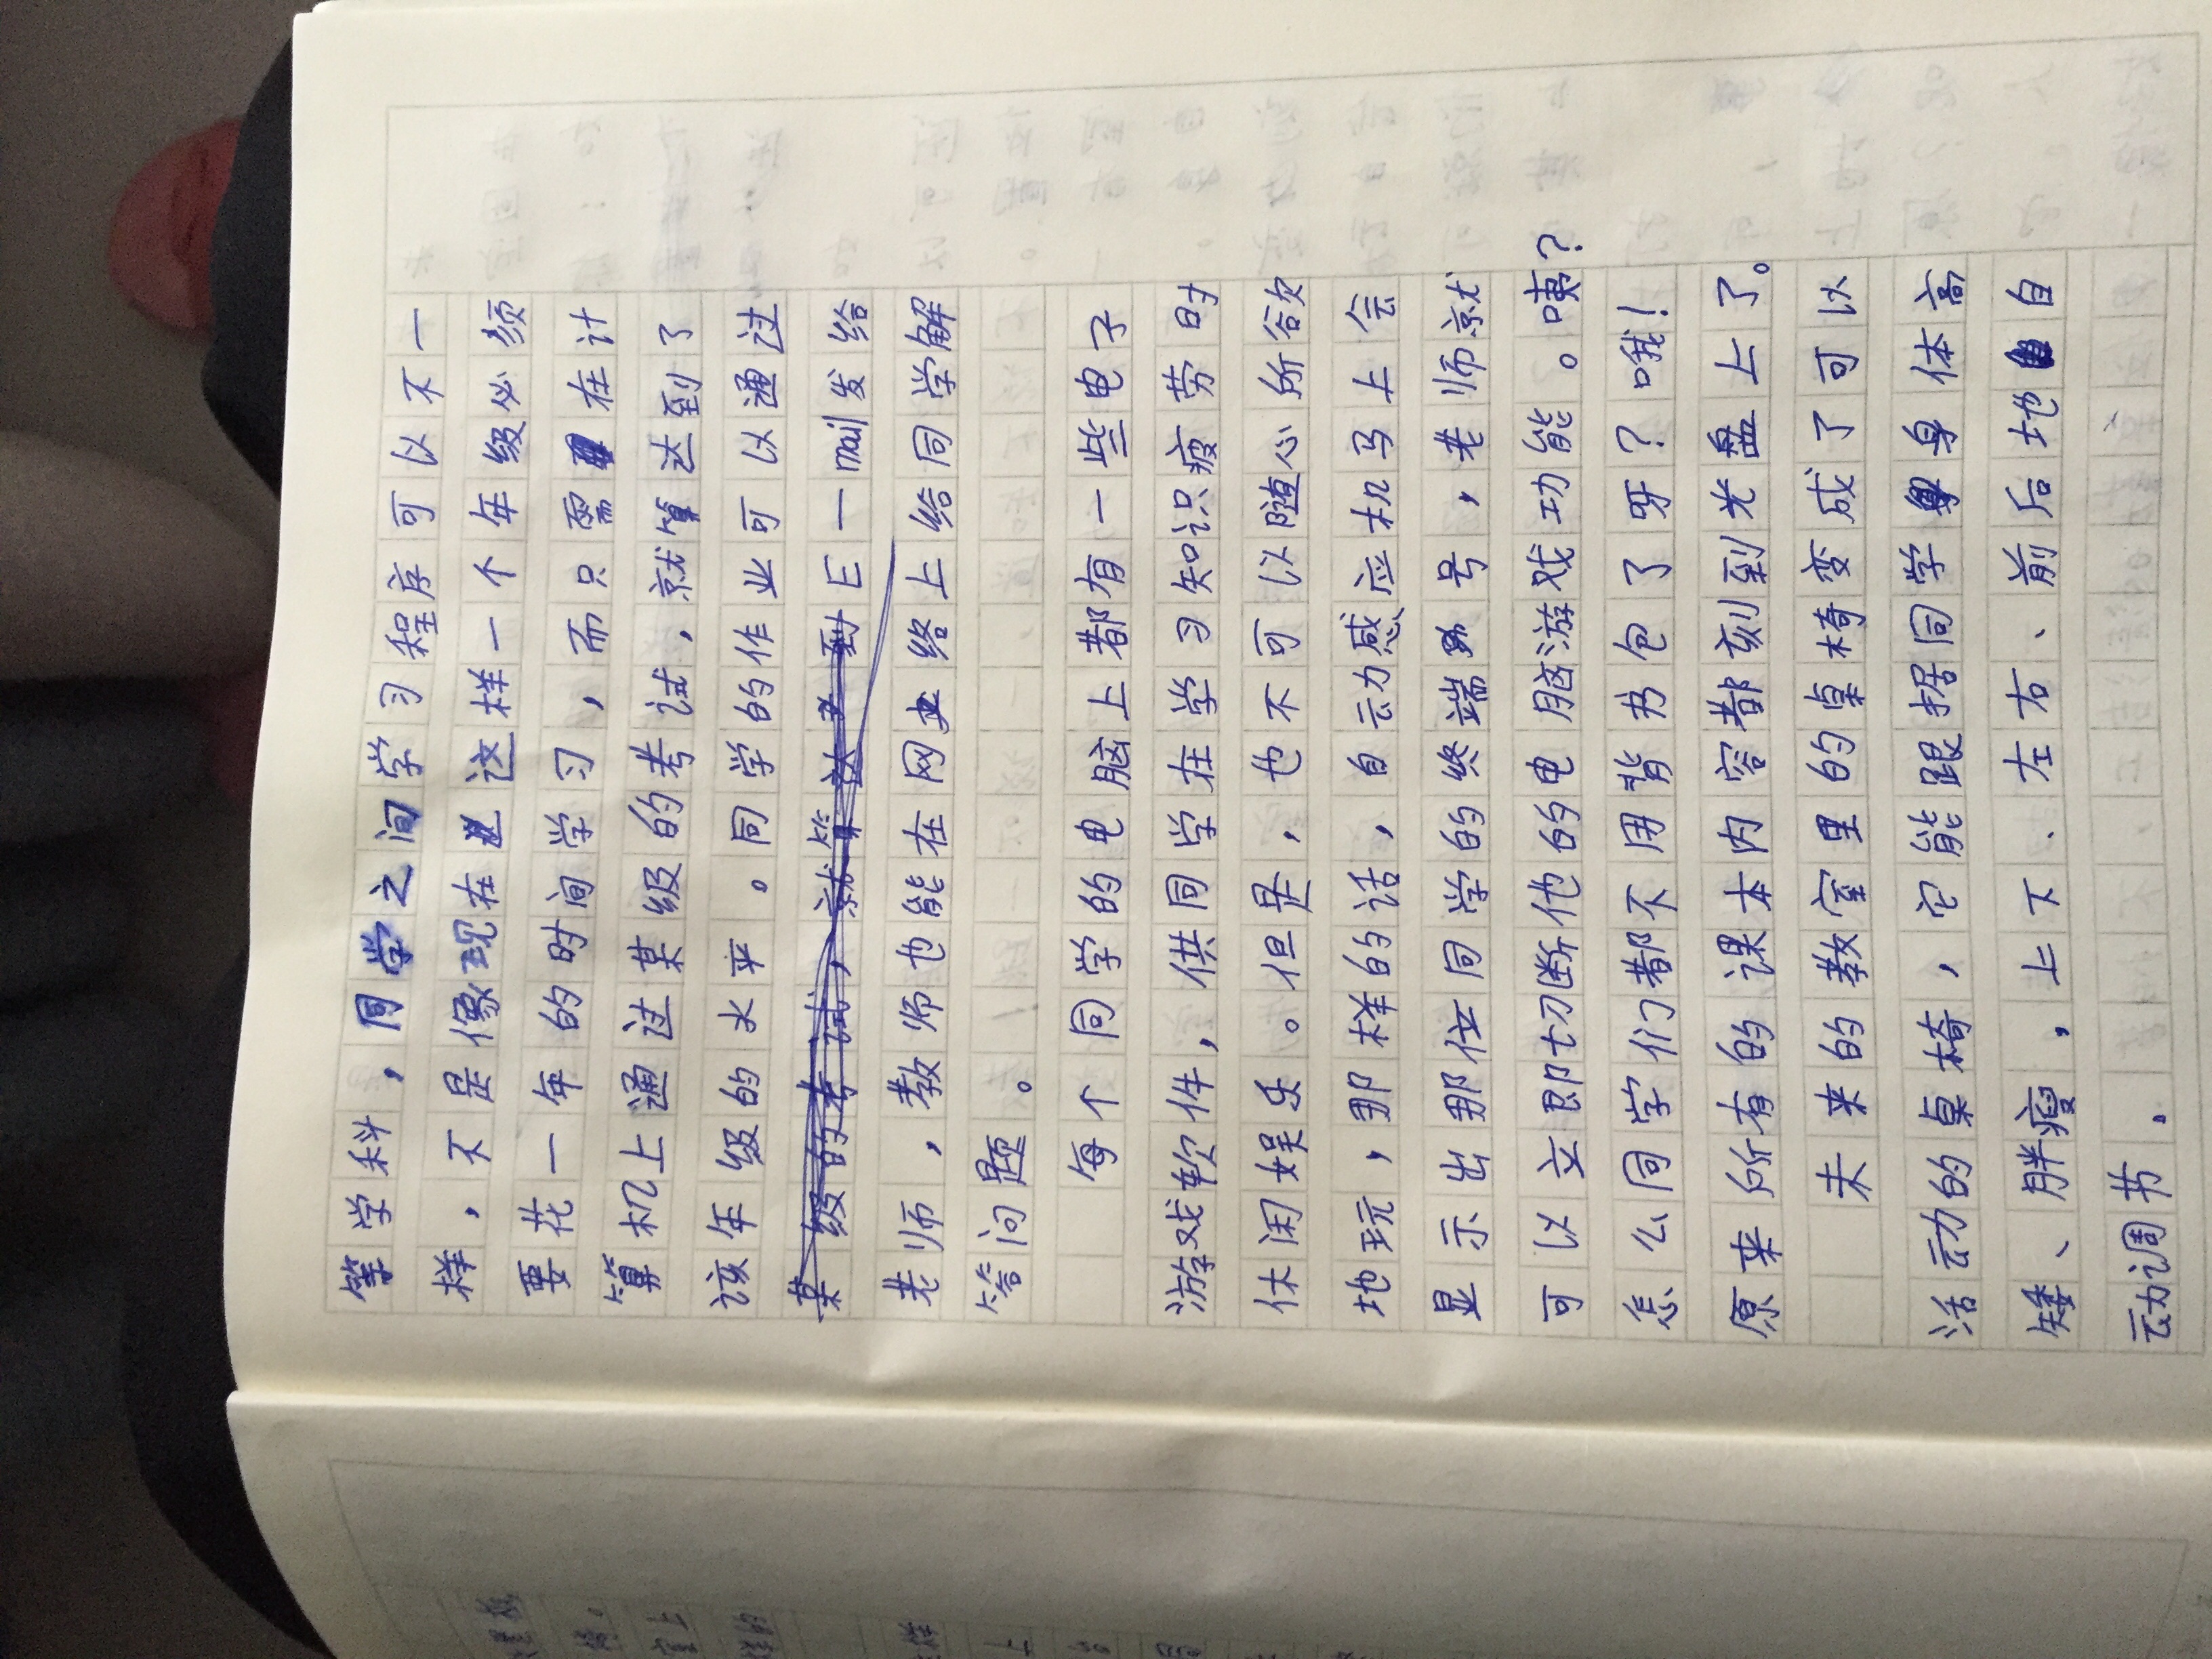 等学科，同学之间学习程序可以不一
样，不是像现在这样一个年级必须
要花一年的时间学习，而只需在计
算机上通过某级的考试，就算达到了
该年级的水平。同学的作业可以通过
E一mail发给
老师，教师也能在网终上给同学解
答问题。
每个同学的电脑上都有一些电子
游戏软件，供同学在学习知识疲劳时
休闲娱乐。但是，也不可以随心所欲
地玩，那样的话，自动感应机马上会
显示出那位同学的终端号，老师就
可以立即切断他的电脑游戏功能。咦？
怎么同学们都不用背书包了呀？哦！
原来所有的课本内容都刻到光盘上了。
未来的教室里的桌椅变成了可以
活动的桌椅，它能跟据同学身体高
矮、胖瘦，上下、左右、前后地自
动调节。